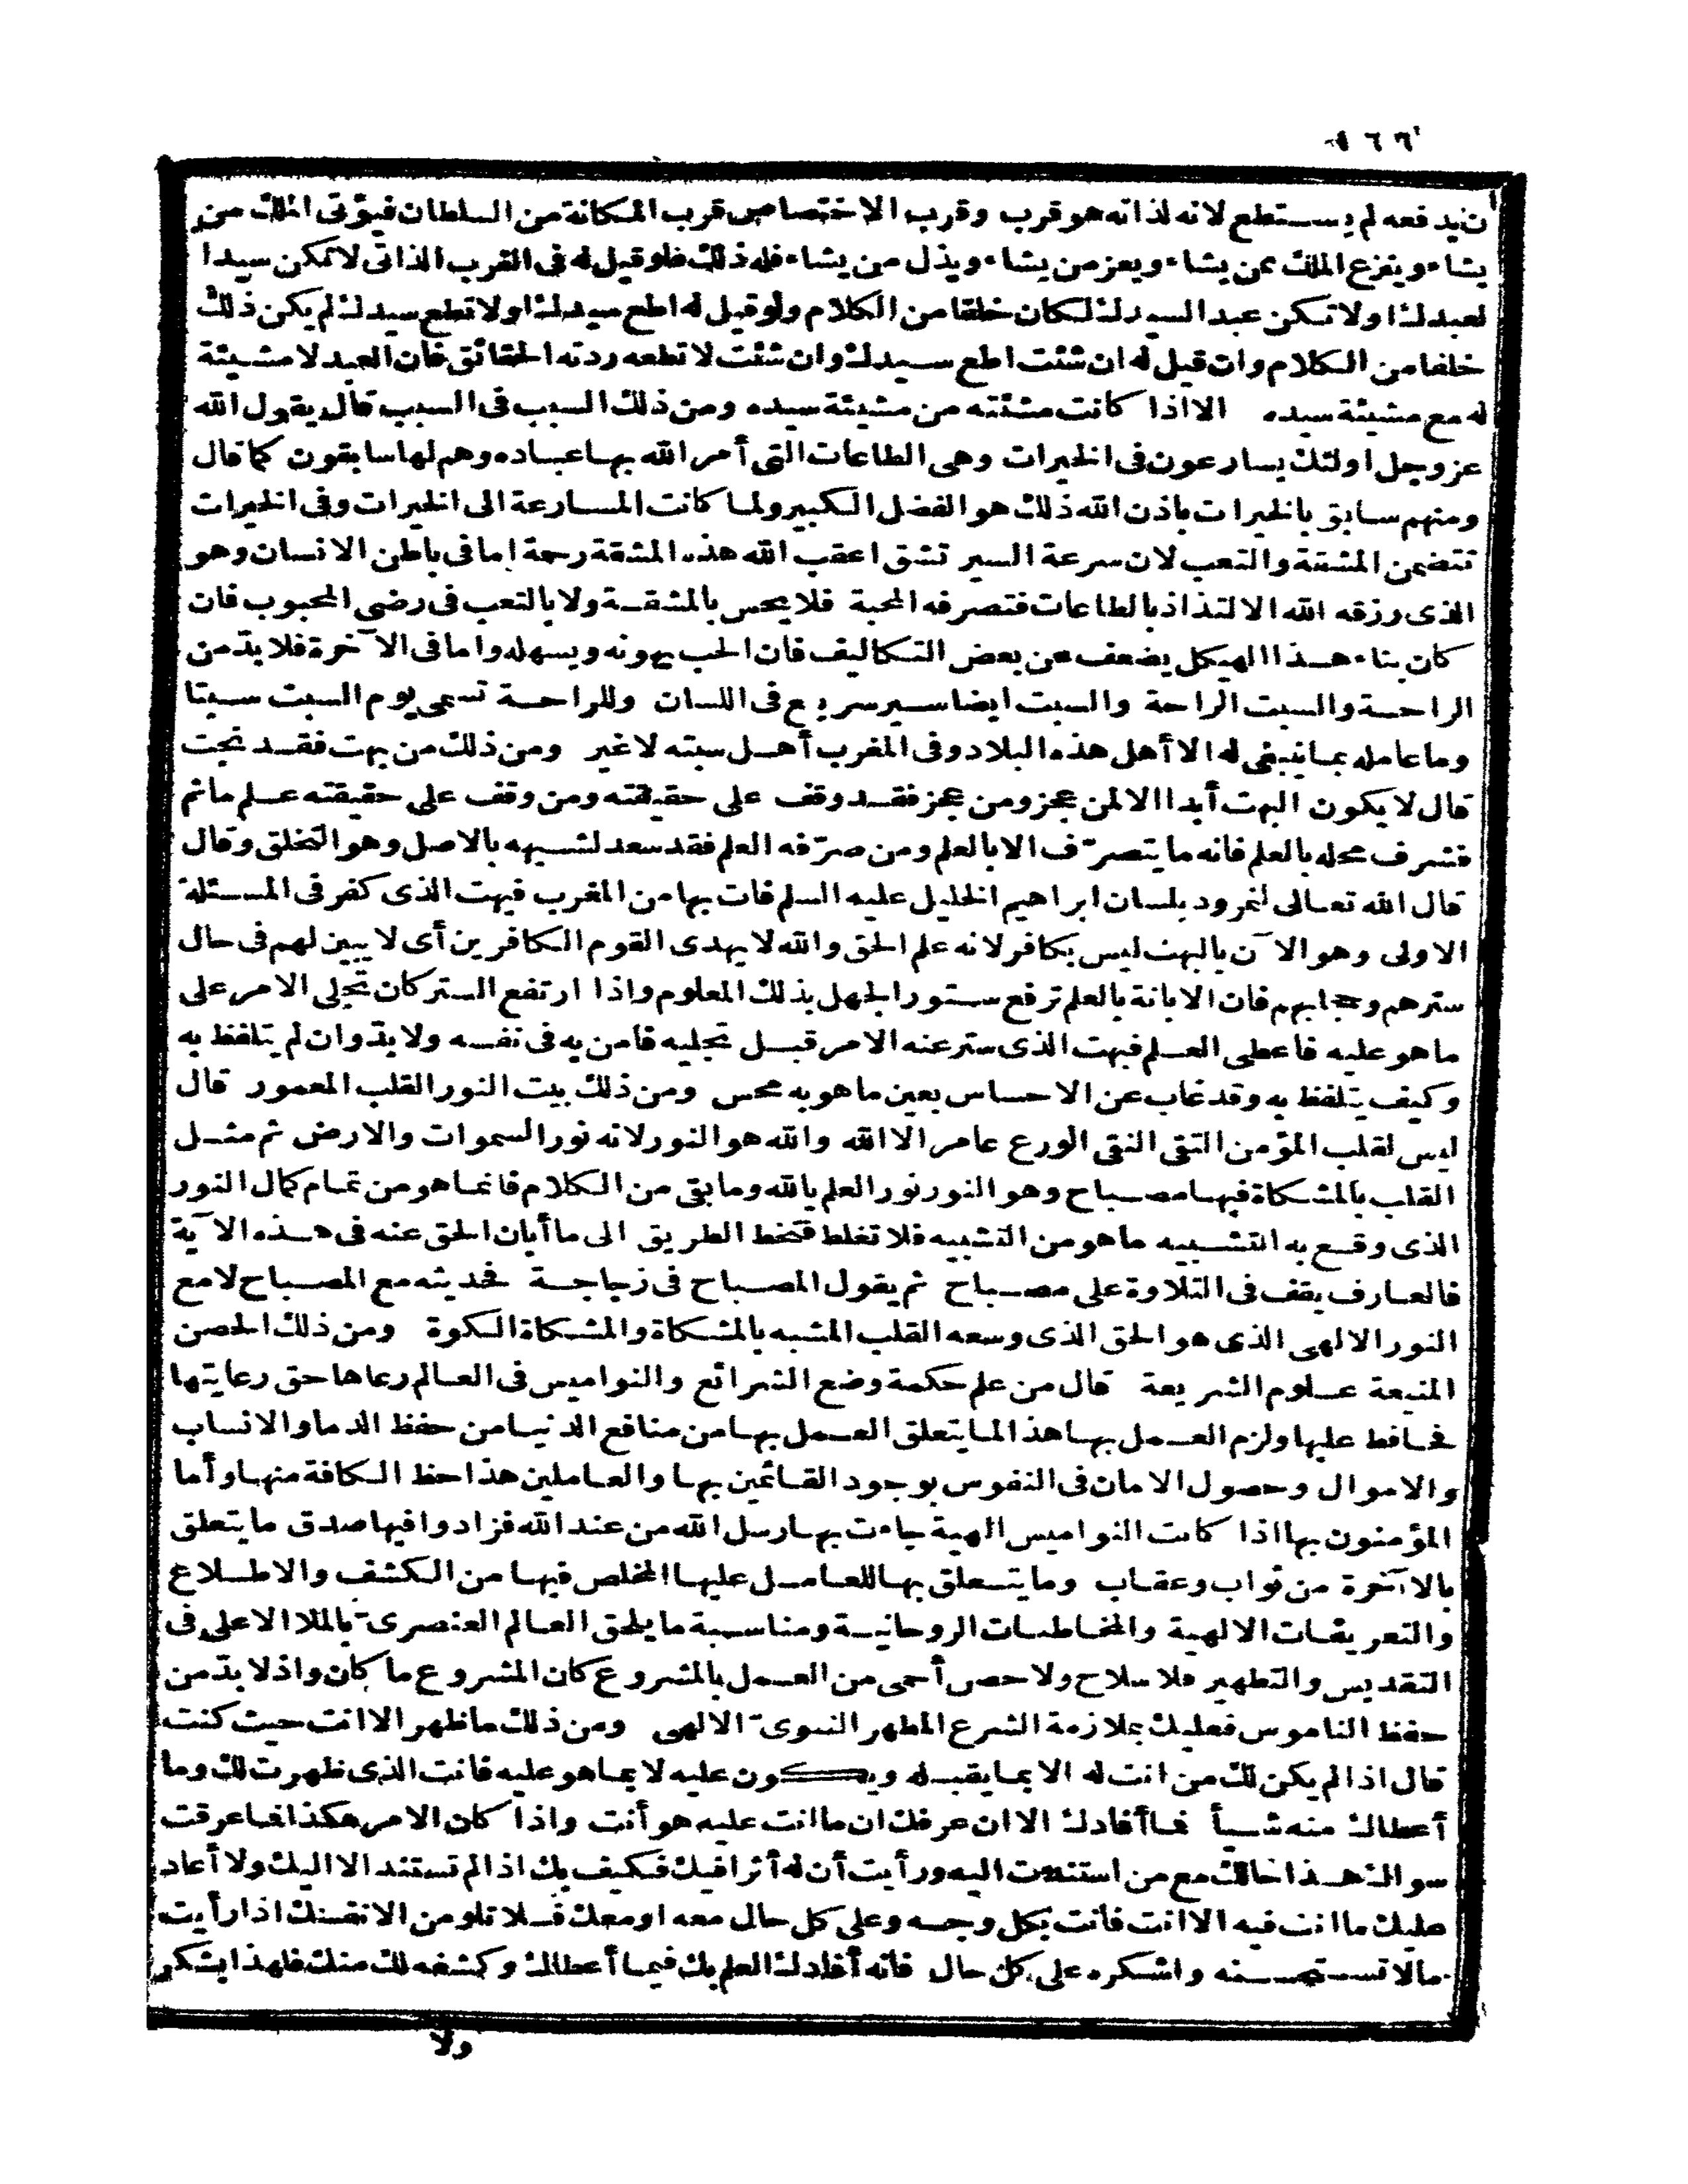 ان يدفعه لم يستطع لانه لذاته هو قرب وقرب الاختصاص قرب المكانة من السلطان فيؤتى الملك من
يشاء وينزع الملك ممن يشاء ويعز من يشاء ويذل من يشاء فله ذلك فلو قيل له فى القرب الذاتى لا تمكن سيدا
لعبدك اولا تكن عبدا لسيدك لكان خلقا من الكلام ولو قيل له اطع سيدك اولا تطع سيدك لم يكن ذلك
خلفا من الكلام وان قيل له ان شئت اطع سيدك وان شئت لا تطعه ردته الحقائق فان العبد لا مشيئة
له مع مشيئة سيده الا اذا كانت مشئته من مشيئة سيده ومن ذلك السبب فى السبب قال يقول الله
عز وجل اولئك يسارعون فى الخيرات وهى الطاعات التى أمر الله بها عباده وهم لها سابقون كما قال
ومنهم سابق بالخيرات باذن الله ذلك هو الفضل الكبير ولما كانت المسارعة الى الخيرات وفى الخيرات
تتضمن المشقة والتعب لان سرعة السير تشق اعقب الله هذه المشقة رحمة اما فى باطن الانسان وهو
الذى رزقه الله الالتذاذ بالطاعات فتصرفه المحبة فلا يحس بالمشقة ولا بالتعب فى رضى المحبوب فان
كان بناء هذا الهيكل يضعف عن بعض التكاليف فان الحب يهونه ويسهله واما فى الآخرة فلا بدّ من
الراحة والسبت الراحة والسبت ايضا سير سريع فى اللسان وللراحة تسمى يوم السبت سبتا
وما عامله بما ينبغى له الا أهل هذه البلاد وفى المغرب أهل سبته لا غير ومن ذلك من بهت فقد نجت
قال لا يكون البهت أبدا الا لمن عجز ومن عجز فقد وقف على حقيقته ومن وقف على حقيقته علم ما ثم
فشرف محله بالعلم فانه ما يتصرّف الا بالعلم ومن صرّفه العلم فقد سعد لشبهه بالاصل وهو التخلق وقال
قال الله تعالى لنمرود بلسان ابراهيم الخليل عليه السلم فات بها من المغرب فبهت الذى كفر فى المسئلة
الاولى وهو الآن بالبهت ليس بكافر لانه علم الحق والله لا يهدى القوم الكافرين أى لا يبين لهم فى حال
سترهم وحجابهم فان الابانة بالعلم ترفع ستور الجهل بذلك المعلوم واذا ارتفع الستر كان تجلى الامر على
ما هو عليه فاعطى العلم فبهت الذى ستر عنه الامر قبل تجليه فامن به فى نفسه ولا بدّ وان لم يتلفظ به
وكيف يتلفظ به وقد غاب عن الاحساس بعين ما هو به محس ومن ذلك بيت النور القلب المعمور قال
ليس لقلب المؤمن التقى النقى الورع عامر الا الله والله هو النور لانه نور السموات والارض ثم مثل
القلب بالمشكاة فيها مصباح وهو النور نور العلم بالله وما بقى من الكلام فانما هو من تمام كمال النور
الذى وقع به التشبيه ما هو من التشبيه فلا تغلط فتخط الطريق الى ما أبان الحق عنه فى هذه الآية
فالعارف يقف فى التلاوة على مصباح ثم يقول المصباح فى زجاجة فحديثه مع المصباح لا مع
النور الالهى الذى هو الحق الذى وسعه القلب المشبه بالمشكاة والمشكاة الكوة ومن ذلك الحصن
المنيعة علوم الشريعة قال من علم حكمة وضع الشرائع والنواميس فى العالم رعاها حق رعايتها
فحافط عليها ولزم العمل بها هذا لما يتعلق العمل بها من منافع الدنيا من حفظ الدما والانساب
والاموال وحصول الامان فى النفوس بوجود القائمين بها والعاملين هذا حظ الكافة منها وأما
المؤمنون بها اذا كانت النواميس الهية جاءت بها رسل الله من عند الله فزادوا فيها صدق ما يتعلق
بالآخرة من ثواب وعقاب وما يتعلق بها للعامل عليها المخلص فيها من الكشف والاطلاع
والتعريفات الالهية والمخاطبات الروحانية ومناسبة ما يلحق العالم العنصرىّ بالملا الاعلى فى
التقديس والتطهير فلا سلاح ولا حصن أحمى من العمل بالمشروع كان المشروع ما كان واذ لا بدّ من
حفظ الناموس فعليك بملازمة الشرع المطهر النبوىّ الالهى ومن ذلك ما ظهر الا انت حيث كنت
قال اذا لم يكن لك من انت له الا بما يقبله ويكون عليه لا بما هو عليه فانت الذى ظهرت لك وما
أعطاك منه شيأ فما أفادك الا ان عرفك ان ما انت عليه هو أنت واذا كان الامر هكذا فما عرفت
سواك هذا حالك مع من استندت اليه ورأيت أن له أثرا فيك فكيف بك اذا لم تستند الا اليك ولا أعاد
عليك ما انت فيه الا انت فانت بكل وجه وعلى كل حال معه او معك فلا تلومن الا نفسك اذا رأيت
ما لا تستحسنه واشكره على كل حال فانه أفادك العلم بك فيما أعطاك وكشفه لك منك فلهذا يشكر
ولا